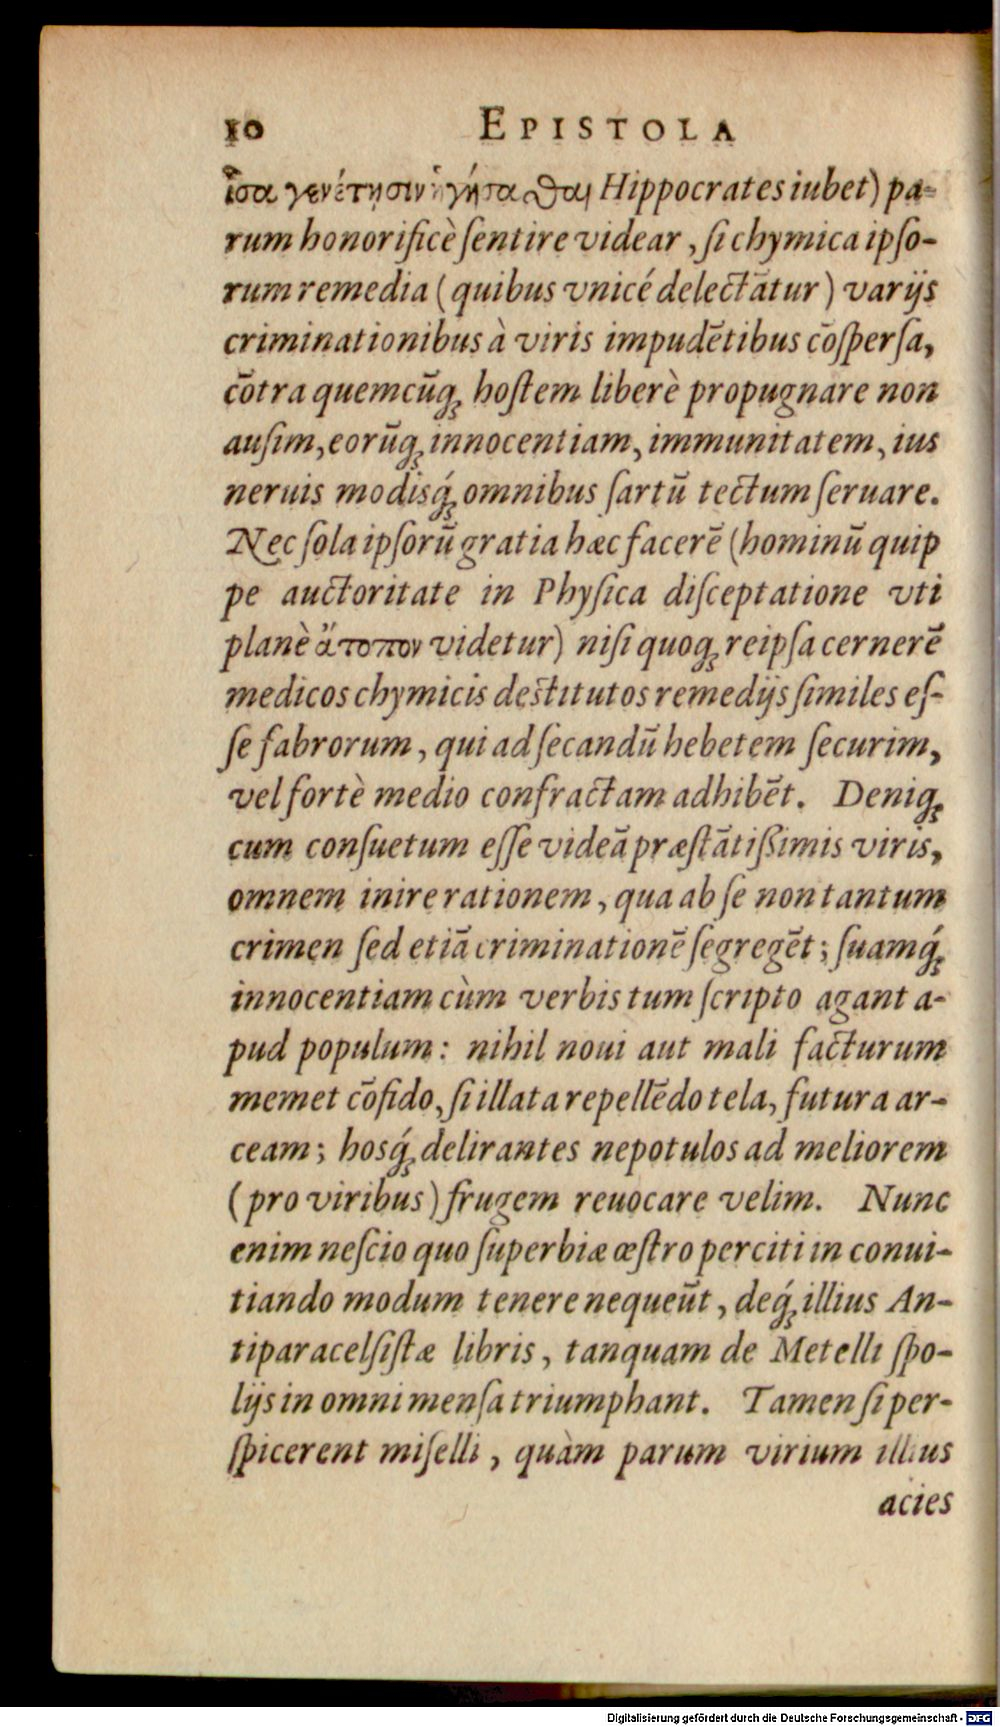 10 EPISTOLA
ἶσα γενέτῃσιν ἡγήσασθαι Hippocrates iubet) pa-
rum honorificè ſentire videar, ſi chymica ipſo-
rum remedia (quibus vnicé delectātur) varijs
criminationibus à viris impudētibus cōſperſa,
cōtra quemcūq; hoſtem liberè propugnare non
auſim, eorūq; innocentiam, immunitatem, ius
neruis modisq́; omnibus ſartū tectum ſeruare.
Nec ſola ipſorū gratia hæc facerē (hominū quip
pe auctoritate in Phyſica diſceptatione vti
planè ἄτοπον videtur) niſi quoq; reipſa cernerē
medicos chymicis deſtitutos remedijs ſimiles eſ-
ſe fabrorum, qui ad ſecandū hebetem ſecurim,
vel fortè medio confractam adhibēt. Deniq;
cum conſuetum eſſe videā præſtātiſſimis viris,
omnem inire rationem, qua ab ſe non tantum
crimen ſed etiā criminationē ſegregēt; ſuamq́;
innocentiam cùm verbis tum ſcripto agant a-
pud populum: nihil noui aut mali facturum
memet cōfido, ſi illata repellēdo tela, futura ar-
ceam; hosq́; delirantes nepotulos ad meliorem
(pro viribus) frugem reuocare velim. Nunc
enim neſcio quo ſuperbiæ œſtro perciti in conui-
tiando modum tenere nequeūt, deq́; illius An-
tiparacelſiſtæ libris, tanquam de Metelli ſpo-
lijs in omni menſa triumphant. Tamen ſi per-
ſpicerent miſelli, quàm parum virium illius
acies
Digitalisierung gefördert durch die Deutsche Forschungsgemeinschaft - DFG